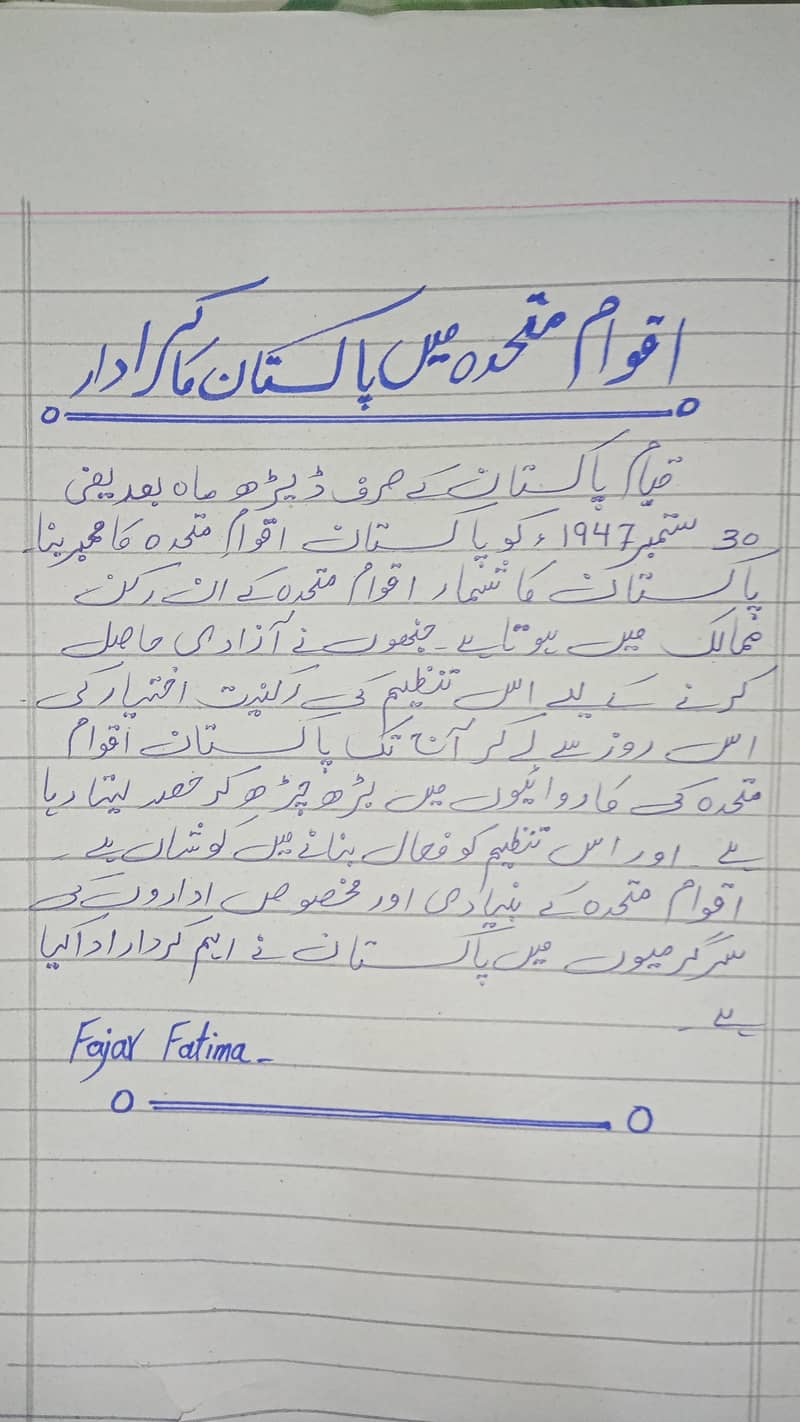 اقوام متحدہ میں پاکستان کا کرادار
قیام پاکستان کے صرف ڈیڑھ ماہ بعد یعنی
30 ستمبر 1947ء کو پاکستان اقوام متحدہ کا ممبر بنا۔
پاکستان کا شمار اقوام متحدہ کے ان رکن
ممالک میں ہوتا ہے۔ جنھوں نے آزادی حاصل
کرنے کے لیے اس تنظیم کی رکنیت اختیار کی۔
اس روز سے لے کر آج تک پاکستان اقوام
متحدہ کی کاروائیوں میں بڑھ چڑھ کر حصہ لیتا رہا
ہے۔ اور اس تنظیم کو فعال بنانے میں کوشاں ہے۔
اقوام متحدہ کے بنیادی اور مخصوص اداروں کی
سرگرمیوں میں پاکستان نے اہم کردار ادا کیا
ہے۔
Fajar Fatima-